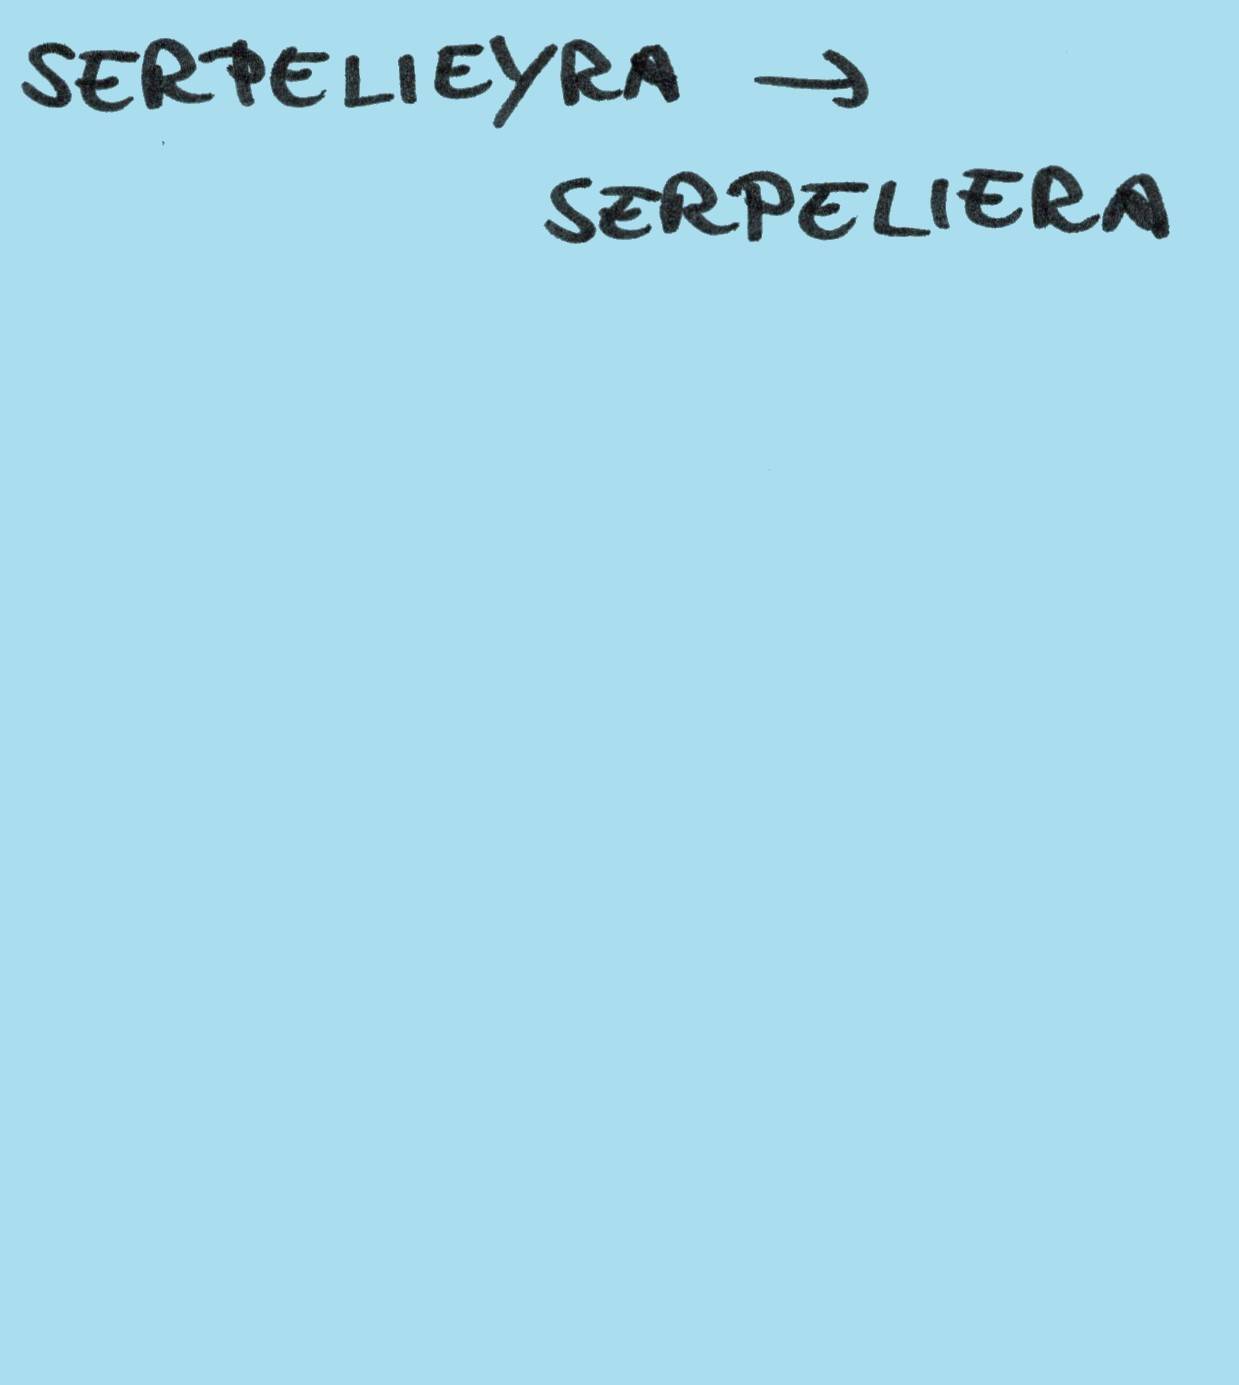 SERPELIEYRA →
SERPELIERA